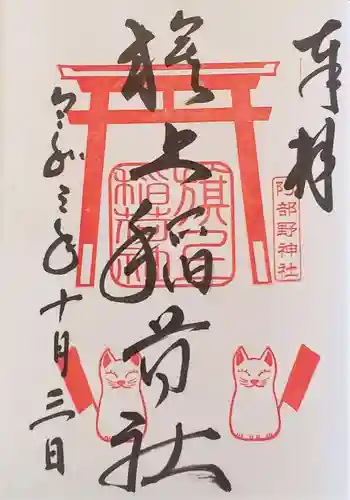 奉拝
阿部野神社
旗上稲荷社
旗上稲荷社
令和三年十月三日